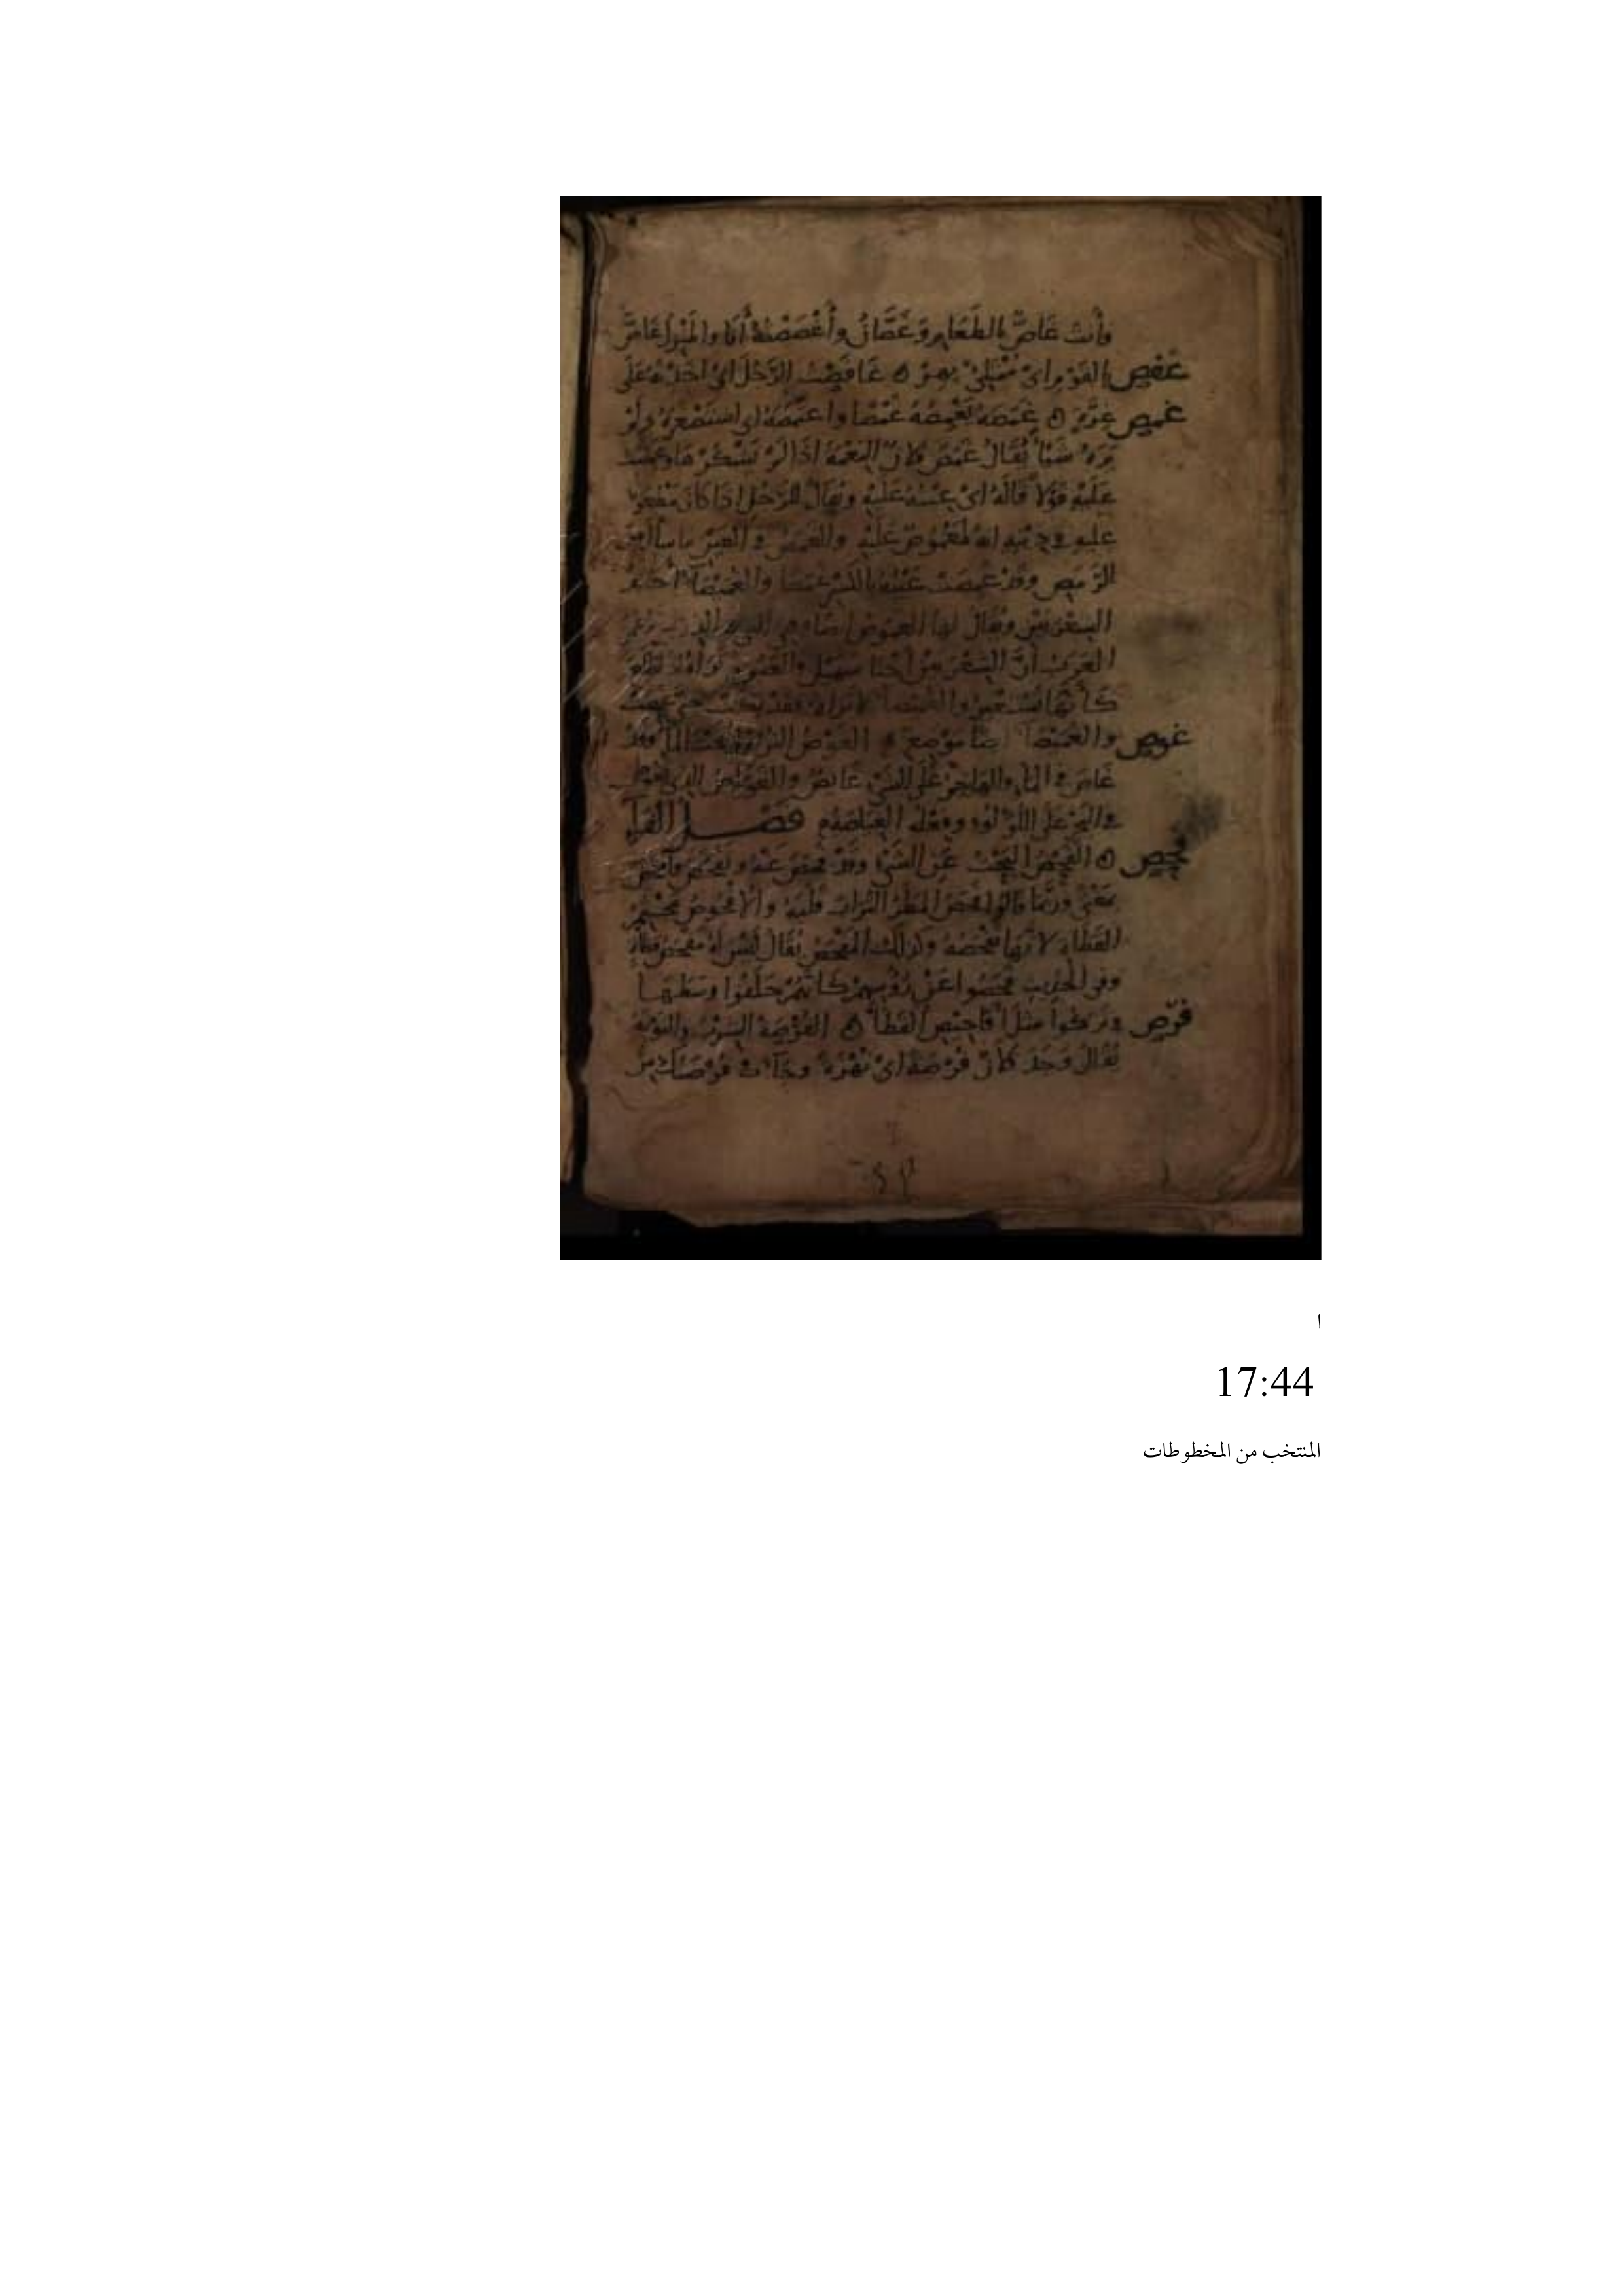 فأنت غاصٌّ بالطعام وغصّان وأغصصته أنا والمنزل غاصّ
غفص
بالقوم اى ممتلئ بهم غافصت الرجل اى اخذته على
غمص
غرّة غمصه يغمصه غمصا واغتمصه اى استصغره ولم
يره شيأ يقال غمص فلان النعمة اذا لم يشكرها وغمصت
عليه قولا قاله اى عبته عليه ويقال للرجل اذا كان مطعونا
عليه فى دينه انه لمغموص عليه والغمص فى العين ما سال من
الرمص وقد غمصت عينه بالكسر غمصا والغميصاء احدى
الشعريين ويقال لها الغموص ايضا وهى التى فى الذراع
العرب أنّ الشعريين اختا سهيل
كأنها تستعبر والغميصاء لا تراه فقد بكت حتى غمصت
غوص
والغميصاء ايضا موضع الغوص النزول تحت الماء وقد
غاص فى الماء والهاجم على الشئ غائص والغوّاص الذى يغوص
فى البحر على اللؤلؤ وفعله الغياصة فصل الفاء
فحص
الفحص البحث عن الشئ وقد فحص عنه وتفحص وافتحص
بمعنى وربما قالوا فحص المطر التراب قلبه والأفحوص مجثم
القطاة لانها تفحصه وكذلك المفحص يقال ليس له مفحص قطاة
وفى الحديث فحصوا عن رؤسهم كانهم حلقوا وسطها
فرص
وتركوها مثل أفاحيص القطا الفرصة الشرب والنوبة
يقال وجد فلان فرصة اى نهزة وجاءت فرصتك من
ا
17:44
المنتخب من المخطوطات